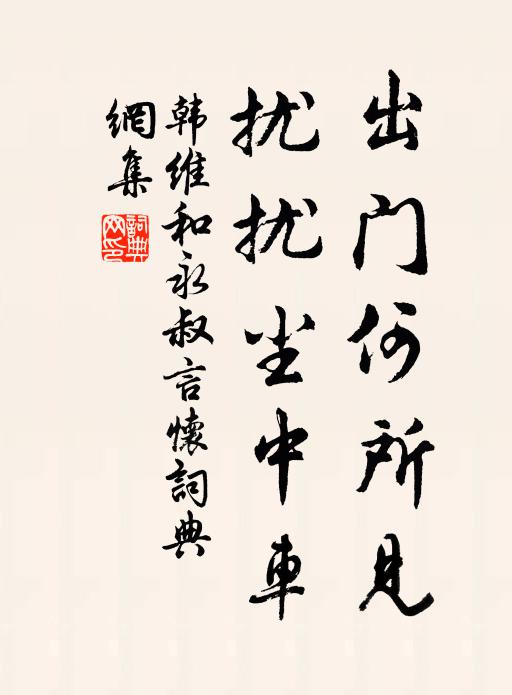 出门何所见
扰扰尘中車
韩维和永叔言懷詞典
網集
詞典
网印